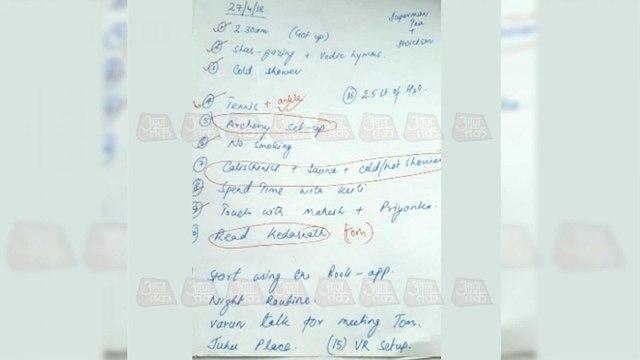 27/4/18
Superman
Tea
+
① 2.30am (Got up)
② Star-gazing + Vedic hymns.
③ Cold shower
④ Tennis + ankle
⑯ 2.5 Lt of H₂O.
⑤ Archery set-up
⑥ No smoking.
⑦ Calisthenics + Sauna + cold/hot shower
⑧ Spend Time with Kriti
⑨ Touch with Mahesh + Priyanka.
Read Kedarnath (Tom)
Start using the Book-app.
Night Routine.
Varun talk for meeting Tom.
Juhu Place. (15) VR Setup.
आज तक